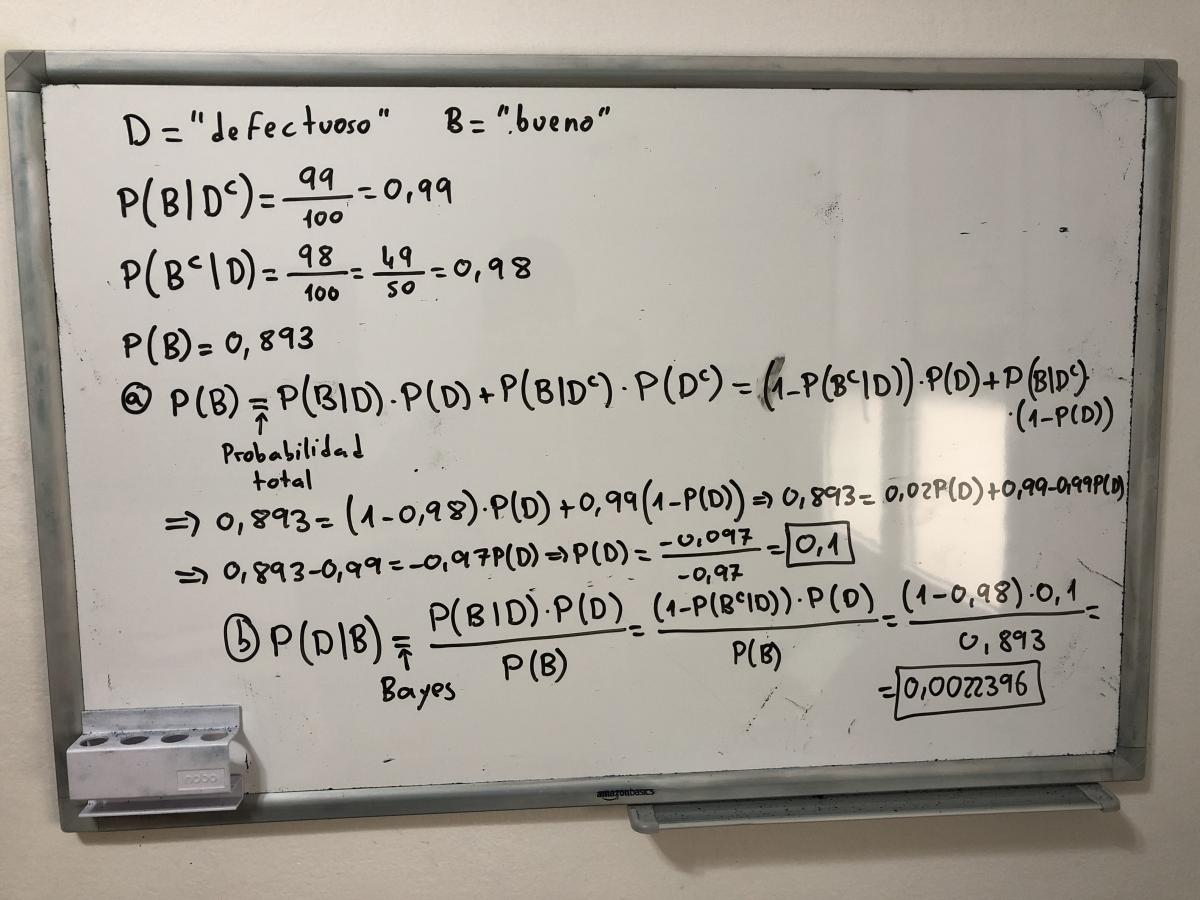 D = "defectuoso" B = "bueno"
P(B|Dᶜ) = 99/100 = 0,99
P(Bᶜ|D) = 98/100 = 49/50 = 0,98
P(B) = 0,893
ⓐ P(B) = P(B|D)·P(D) + P(B|Dᶜ)·P(Dᶜ) = (1-P(Bᶜ|D))·P(D) + P(B|Dᶜ)·
·(1-P(D))
↑
Probabilidad
total
⇒ 0,893 = (1-0,98)·P(D) + 0,99(1-P(D)) ⇒ 0,893 = 0,02P(D) + 0,99 - 0,99P(D)
⇒ 0,893 - 0,99 = -0,97P(D) ⇒ P(D) = -0,097/-0,97 = 0,1
ⓑ P(D|B) = P(B|D)·P(D)/P(B) = (1-P(Bᶜ|D))·P(D)/P(B) = (1-0,98)·0,1/0,893 =
↑
Bayes
= 0,0022396
nobo
amazonbasics